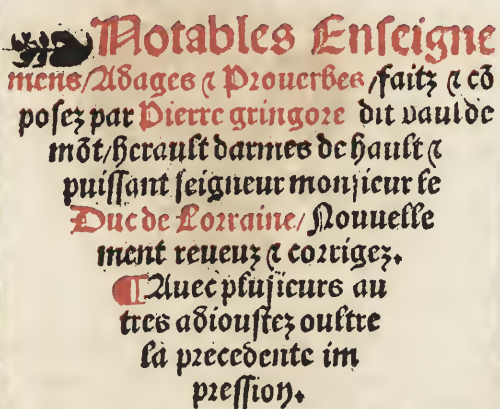 Notables Enseigne
mens/Adages ⁊ Prouerbes/faitz ⁊ cō
posez par Pierre gringore dit vaulde
mōt/herault darmes de hault ⁊
puissant seigneur monsieur le
Duc de Lorraine/Nouuelle
ment reueuz ⁊ corrigez.
¶Auec plusieurs au
tres adioustez oultre
la precedente im
pression.